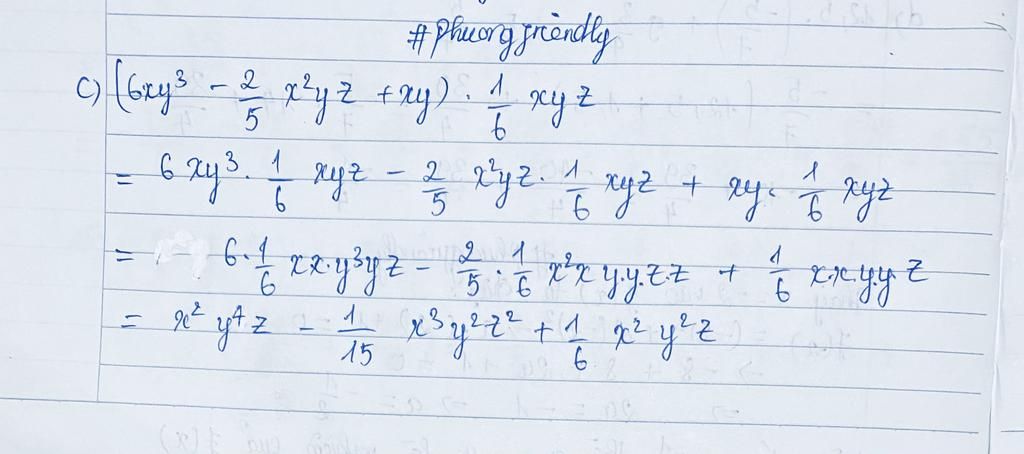 #phuongfriendly
c) (6xy³ - 2/5 x²yz + xy) · 1/6 xyz
= 6xy³ · 1/6 xyz - 2/5 x²yz · 1/6 xyz + xy · 1/6 xyz
= 6 · 1/6 xx·y³yz - 2/5 · 1/6 x²x y.y.z.z + 1/6 x.x.y.y z
= x² y⁴ z - 1/15 x³y²z² + 1/6 x² y²z